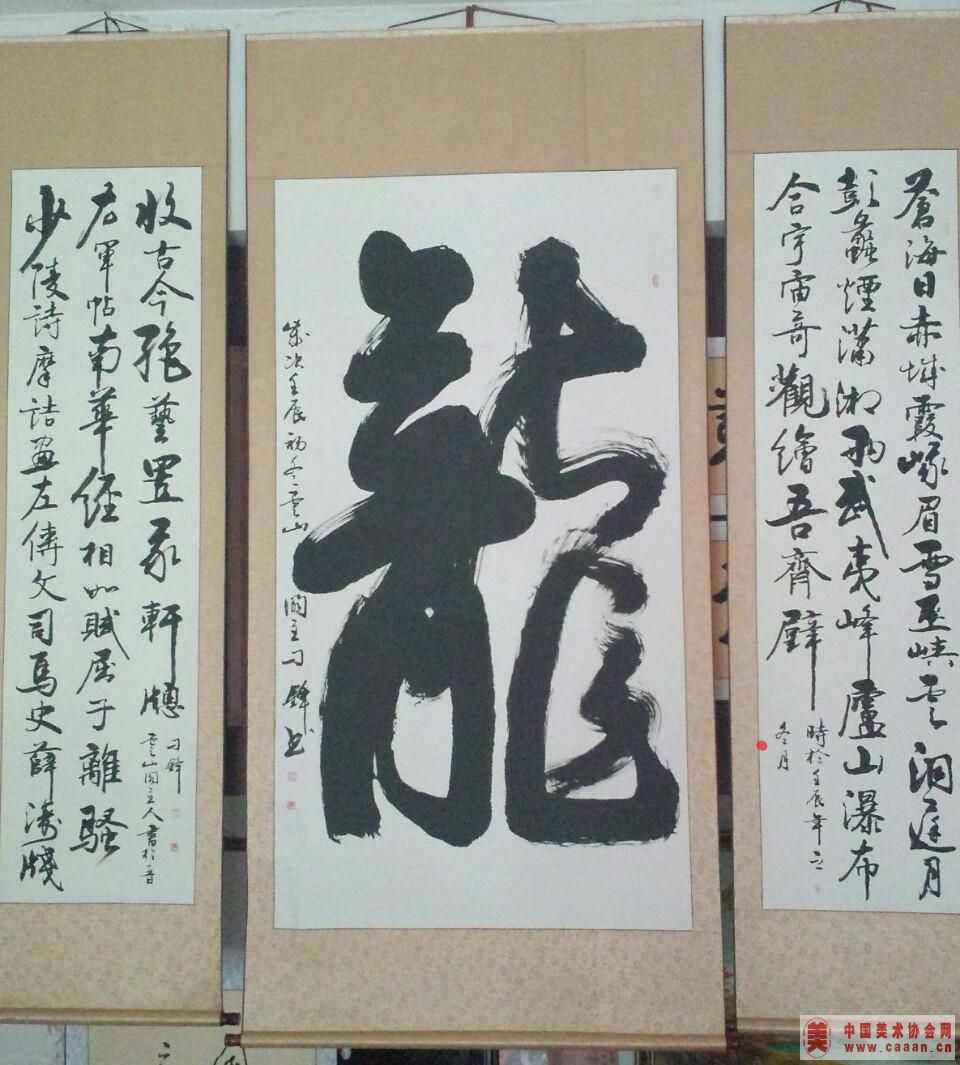 蒼海日赤城霞峨眉雪巫峽雲洞庭月
彭蠡煙瀟湘雨武夷峰廬山瀑布
合宇宙奇觀繪吾齋壁
時於壬辰年之
冬月
龍
歲次壬辰初冬雲山
閣主刁鋒書
少陵詩摩詰畫左傳文司馬史薛濤牋
右軍帖南華經相如賦屈子離騷
收古今絕藝置我軒牕
刁鋒
雲山閣主人書於晋
中国美术协会网
www.caaan.cn